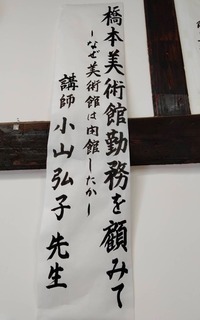 橋本美術館勤務を顧みて
ーなぜ美術館は閉館したかー
講師 小山弘子 先生